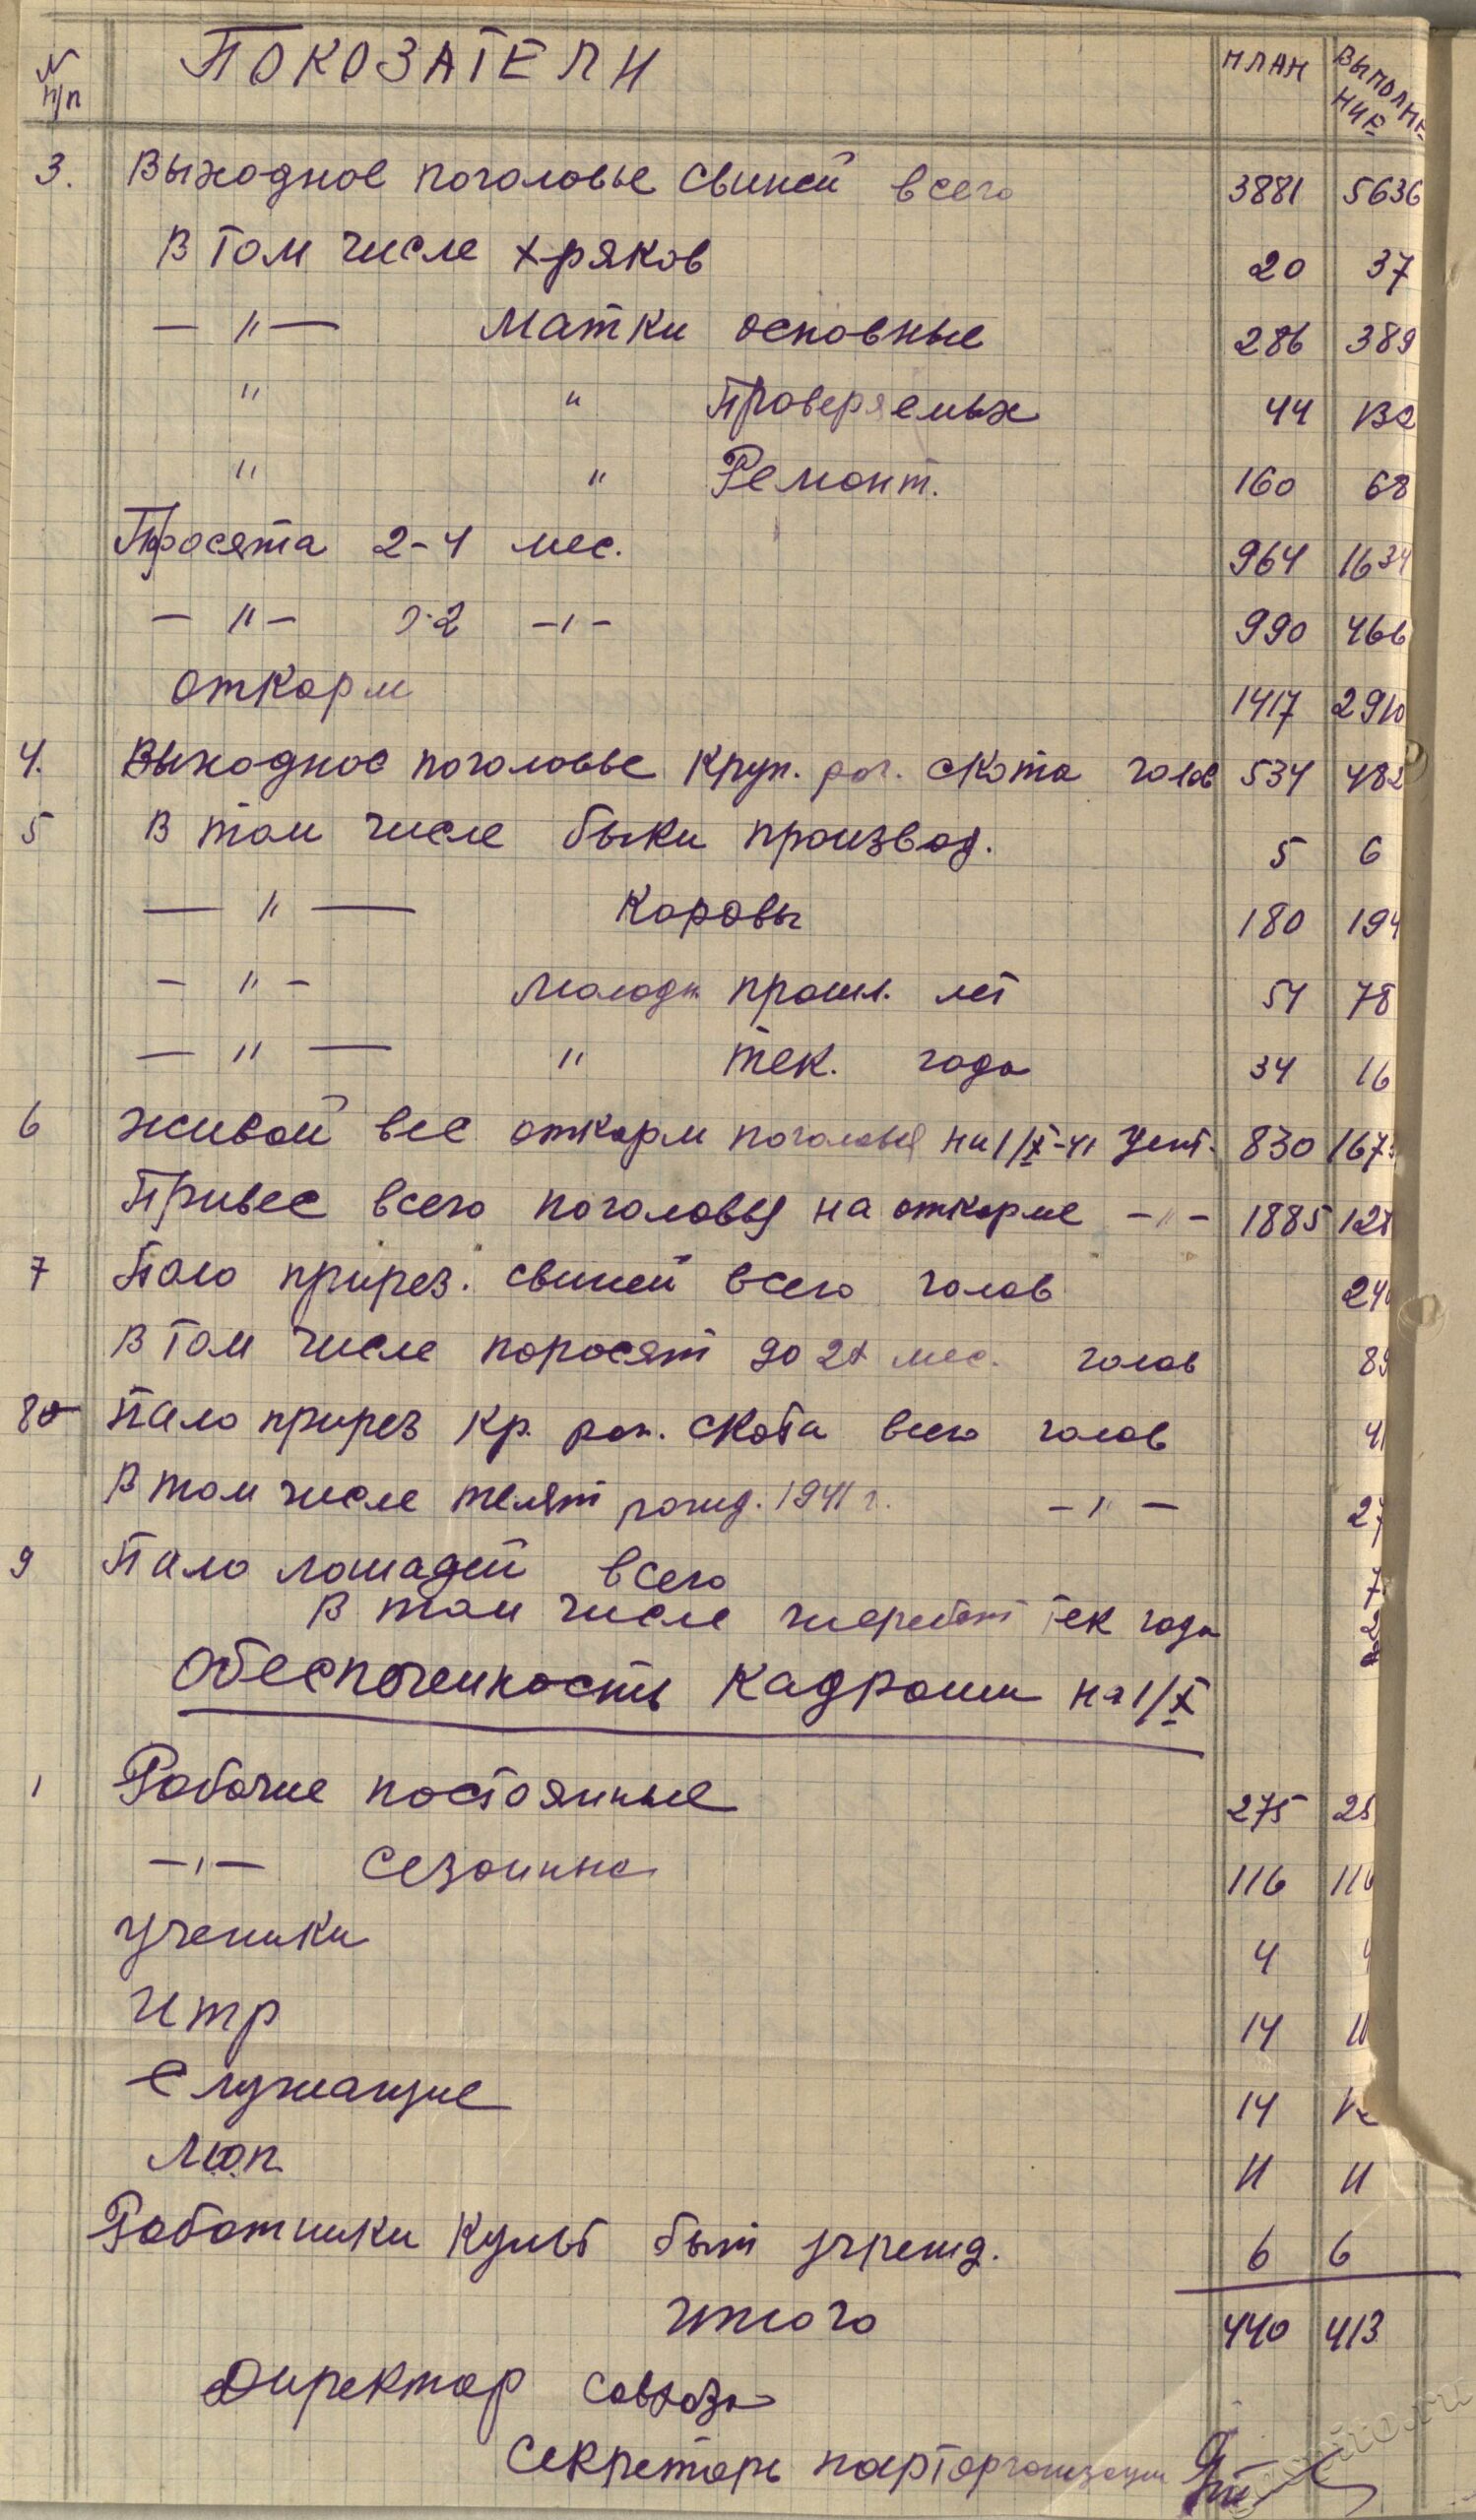 N п/п ПОКОЗАТЕЛИ ПЛАН ВЫПОЛНЕНИЕ
3. Выходное поголовье свиней всего 3881 5636
В том числе хряков 20 37
— " — Матки основные 286 389
" " Проверяемых 44 132
" " Ремонт. 160 68
Поросята 2-4 мес. 964 1634
— " — 0-2 — " — 990 466
Откорм 1417 2910
4. Выходное поголовье круп. рог. скота голов 534 482
5 В том числе быки производ. 5 6
— " — Коровы 180 194
— " — Молодн прошл. лет 54 78
— " — " тек. года 34 16
6 Живой вес откорм поголовья на 1/X-41 цент. 830 167
Привес всего поголовья на откорме — " — 1885 128
7 Пало прирез. свиней всего голов 24
В том числе поросят до 2х мес. голов 89
8 Пало прирез кр. рог. скота всего голов 41
В том числе телят рожд. 1941 г. — " — 27
9 Пало лошадей всего 7
В том числе жеребят тек года 2
Обеспеченность кадрами на 1/X
1 Рабочие постоянные 275 25
— " — Сезонные 116 116
Ученики 4 4
Итр 14 11
Служащие 14
МОП 11 11
Работники культ быт учрежд. 6 6
Итого 440 413
Директор совхоза
Секретарь парторганизации